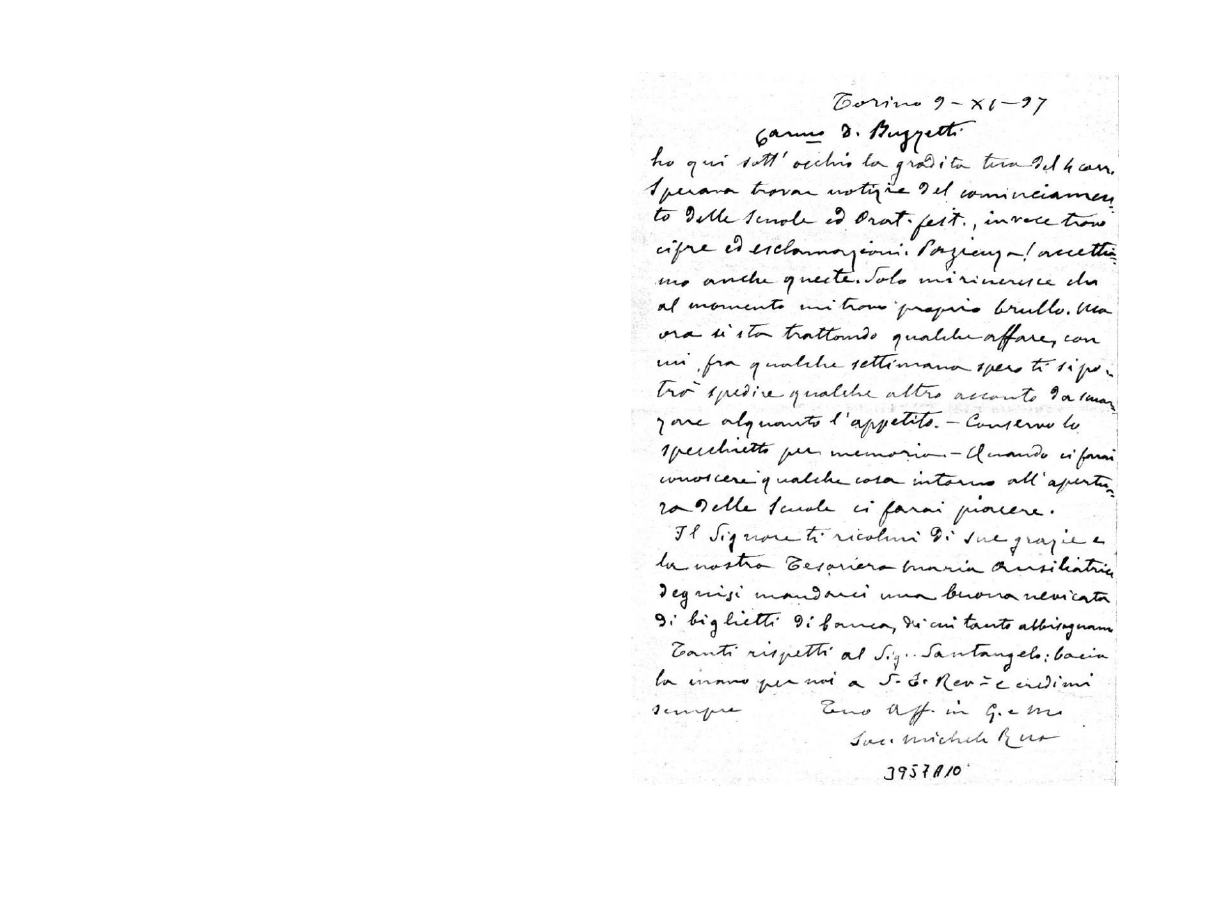 Torino 9-XI-97
Car.mo D. Buzzetti
ho qui sott' occhio la gradita tua del 4 corr.
Sperava trovar notizie del cominciamen-
to delle Scuole ed Orat. fest., invece trovo
cifre ed esclamazioni. Pazienza! accettia-
mo anche queste. Solo mi rincresce che
al momento mi trovo proprio brullo. Ma
ora si sta trattando qualche affare, con
cui, fra qualche settimana spero ti si po-
trà spedire qualche altro acconto da smor-
zare alquanto l'appetito. - Conservo lo
specchietto per memoria. - Quando ci farai
conoscere qualche cosa intorno all'apertu-
ra delle Scuole ci farai piacere.
Il Signore ti ricolmi di sue grazie e
la nostra Tesoriera Maria Ausiliatrice
degnisi mandarci una buona nevicata
di biglietti di banca, di cui tanto abbisogniamo
Tanti rispetti al Sig. Santangelo: bacia
la mano per noi a S. E. Rev= e credimi
sempre Tuo Aff. in G. e M.
Sac. Michele Rua
3957A10